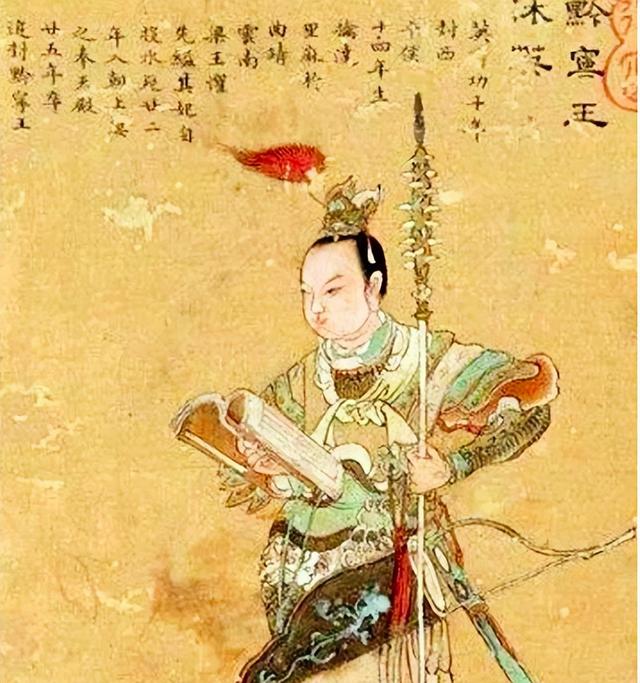 黔寧王
沐英
功十年
封西
平侯
十四年生
擒達
里麻於
曲靖
雲南
梁王懼
先縊其妃自
投水死廿二
年入朝上宴
之奉天殿
廿五年卒
追封黔寧王